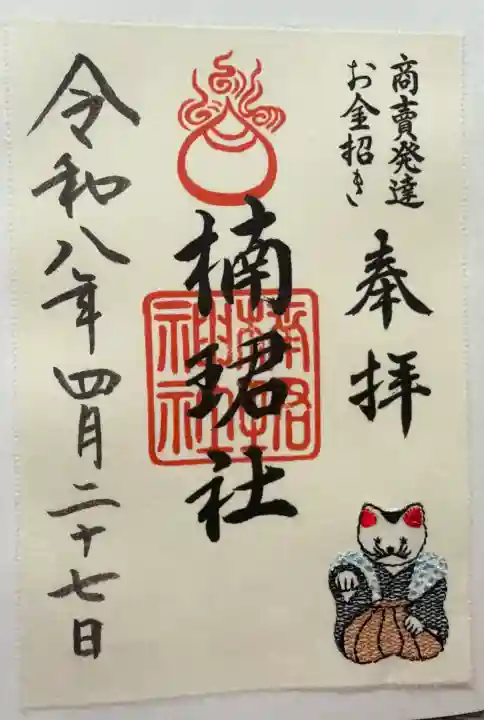 商賣発達
お金招き
奉拝
楠珺社
令和八年四月二十七日